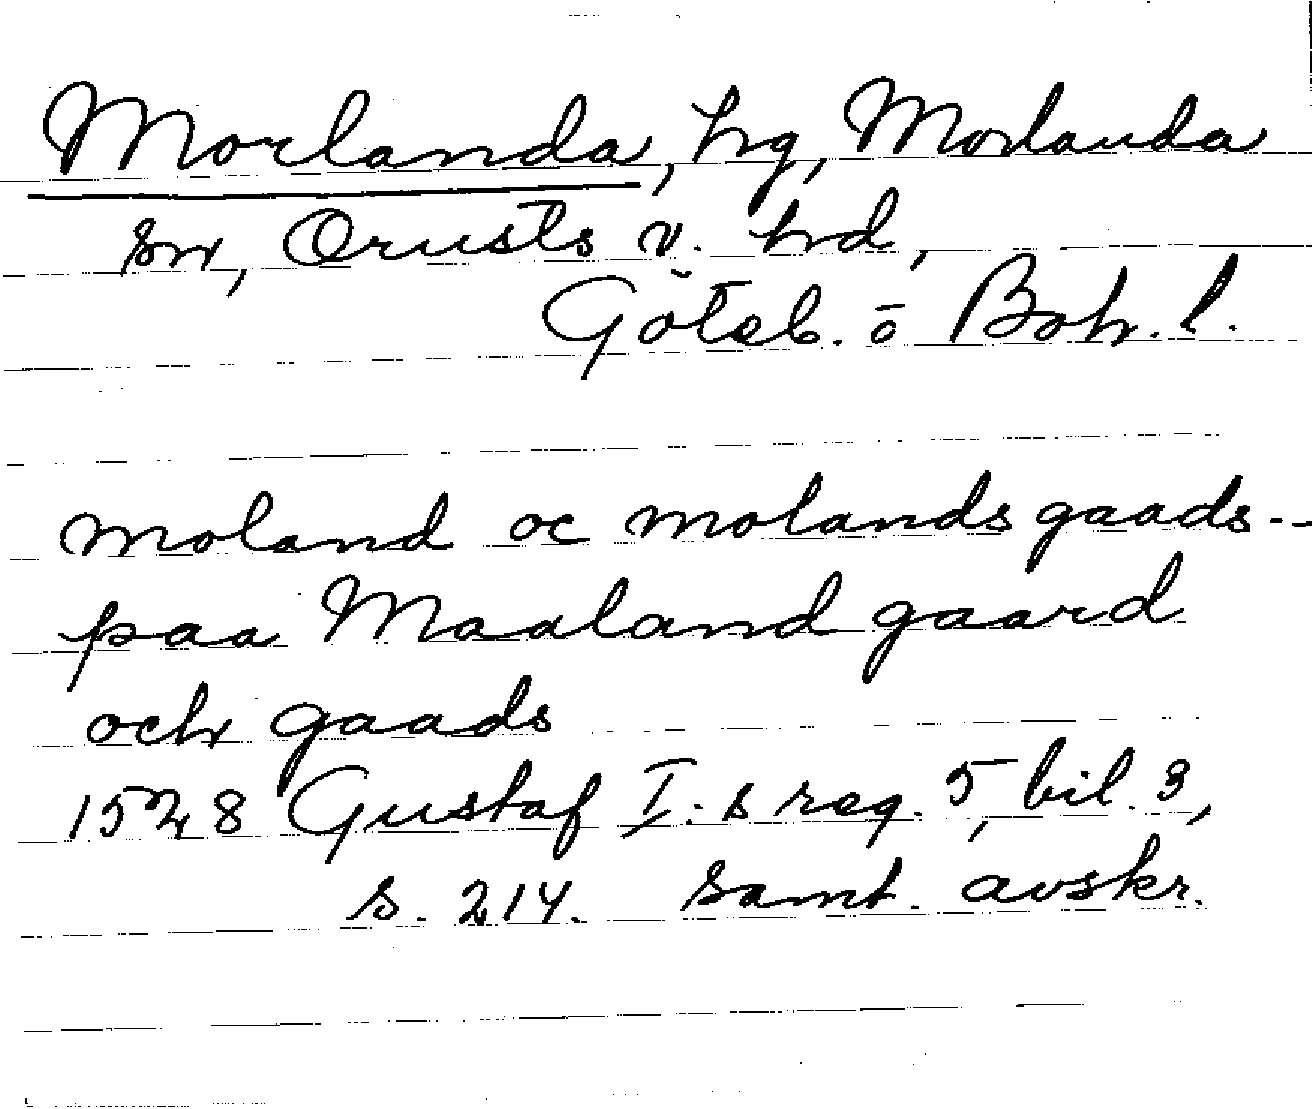 Morlanda, hg, Morlanda
sn, Orusts v. hd,
Göteb. o Boh. l.
moland oc molands gaads--
paa Maaland gaard
och gaads
1528 Gustaf I:s reg. 5, bil. 3,
s. 214. samt. avskr.